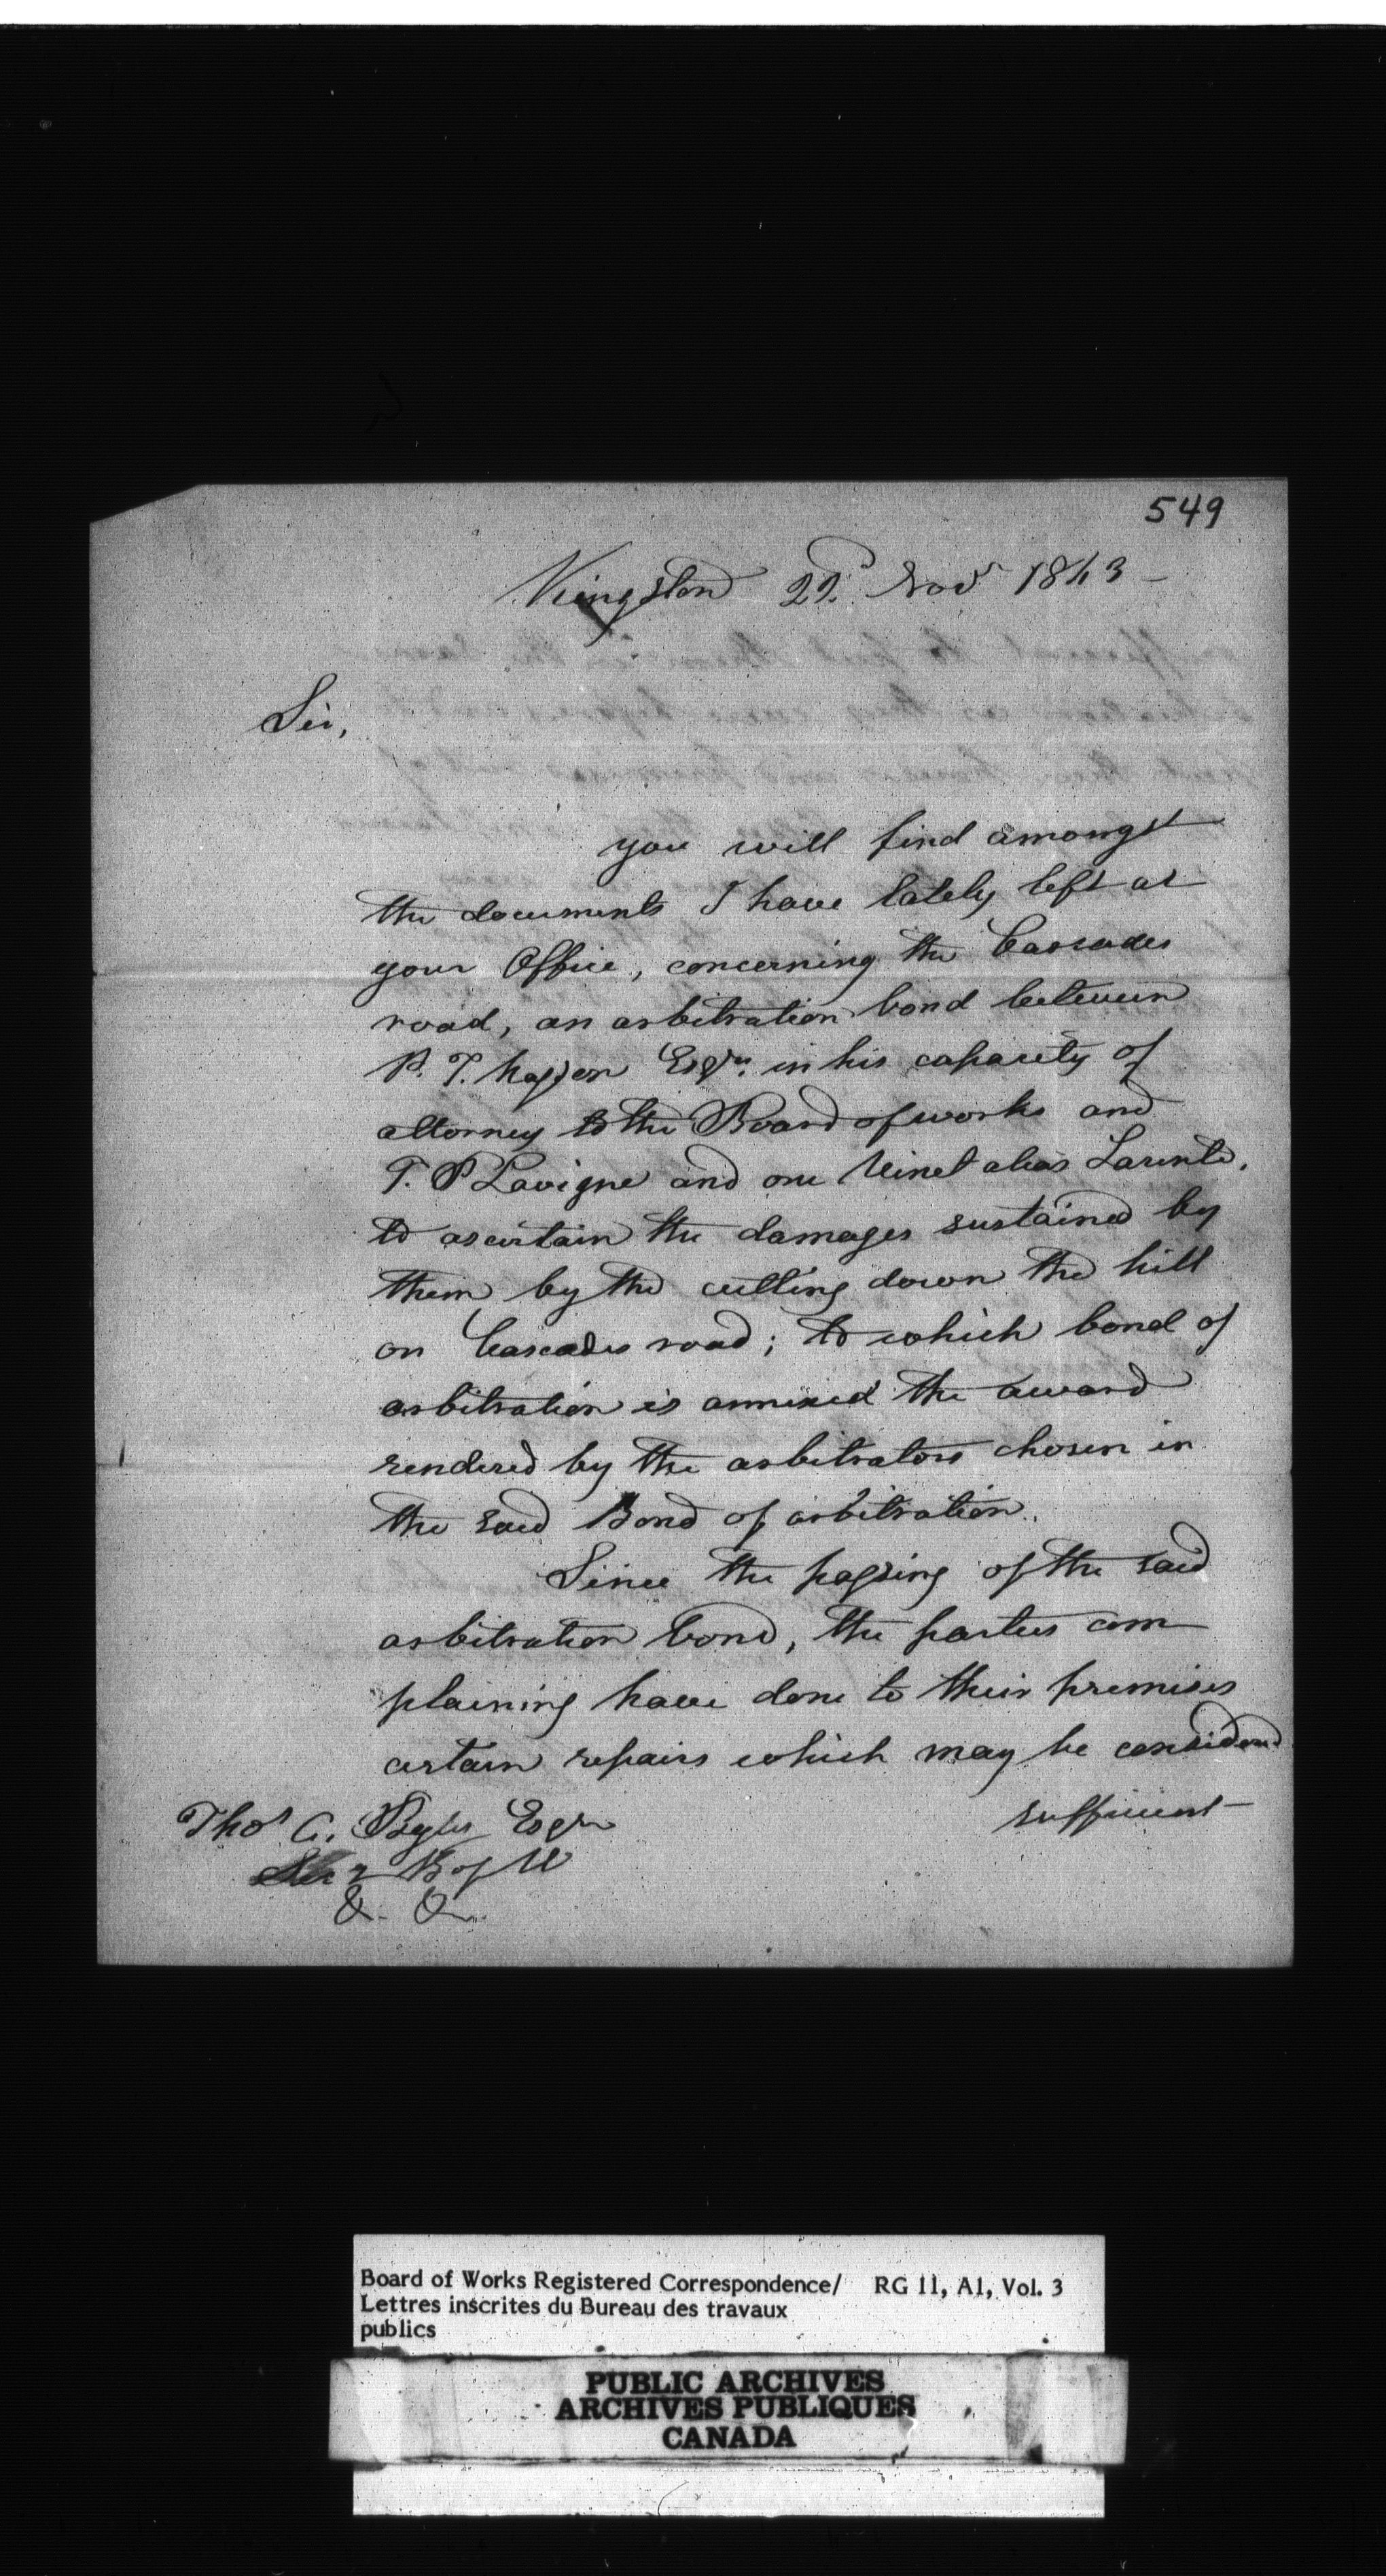 549
Kingston 22d Novr 1843 -
Sir,
you will find amongst
the documents I have lately left at
your Office, concerning the Cascades
road, an arbitration bond between
P. T. Masson Esqr. in his capacity of
attorney to the Board of works and
T. P Lavigne and one Vinet alias Larente,
to ascertain the damages sustained by
them by the cutting down the hill
on Cascades road; to which bond of
arbitration is annexed the award
rendered by the arbitrators chosen in
the said Bond of arbitration.
Since the passing of the said
arbitration bond, the parties com
plaining have done to their premises
certain repairs which may be considered
sufficient
Thos A. Begly Esqr
B of W
&. &.
Board of Works Registered Correspondence/ RG 11, A1, Vol. 3
Lettres inscrites du Bureau des travaux
publics
PUBLIC ARCHIVES
ARCHIVES PUBLIQUES
CANADA